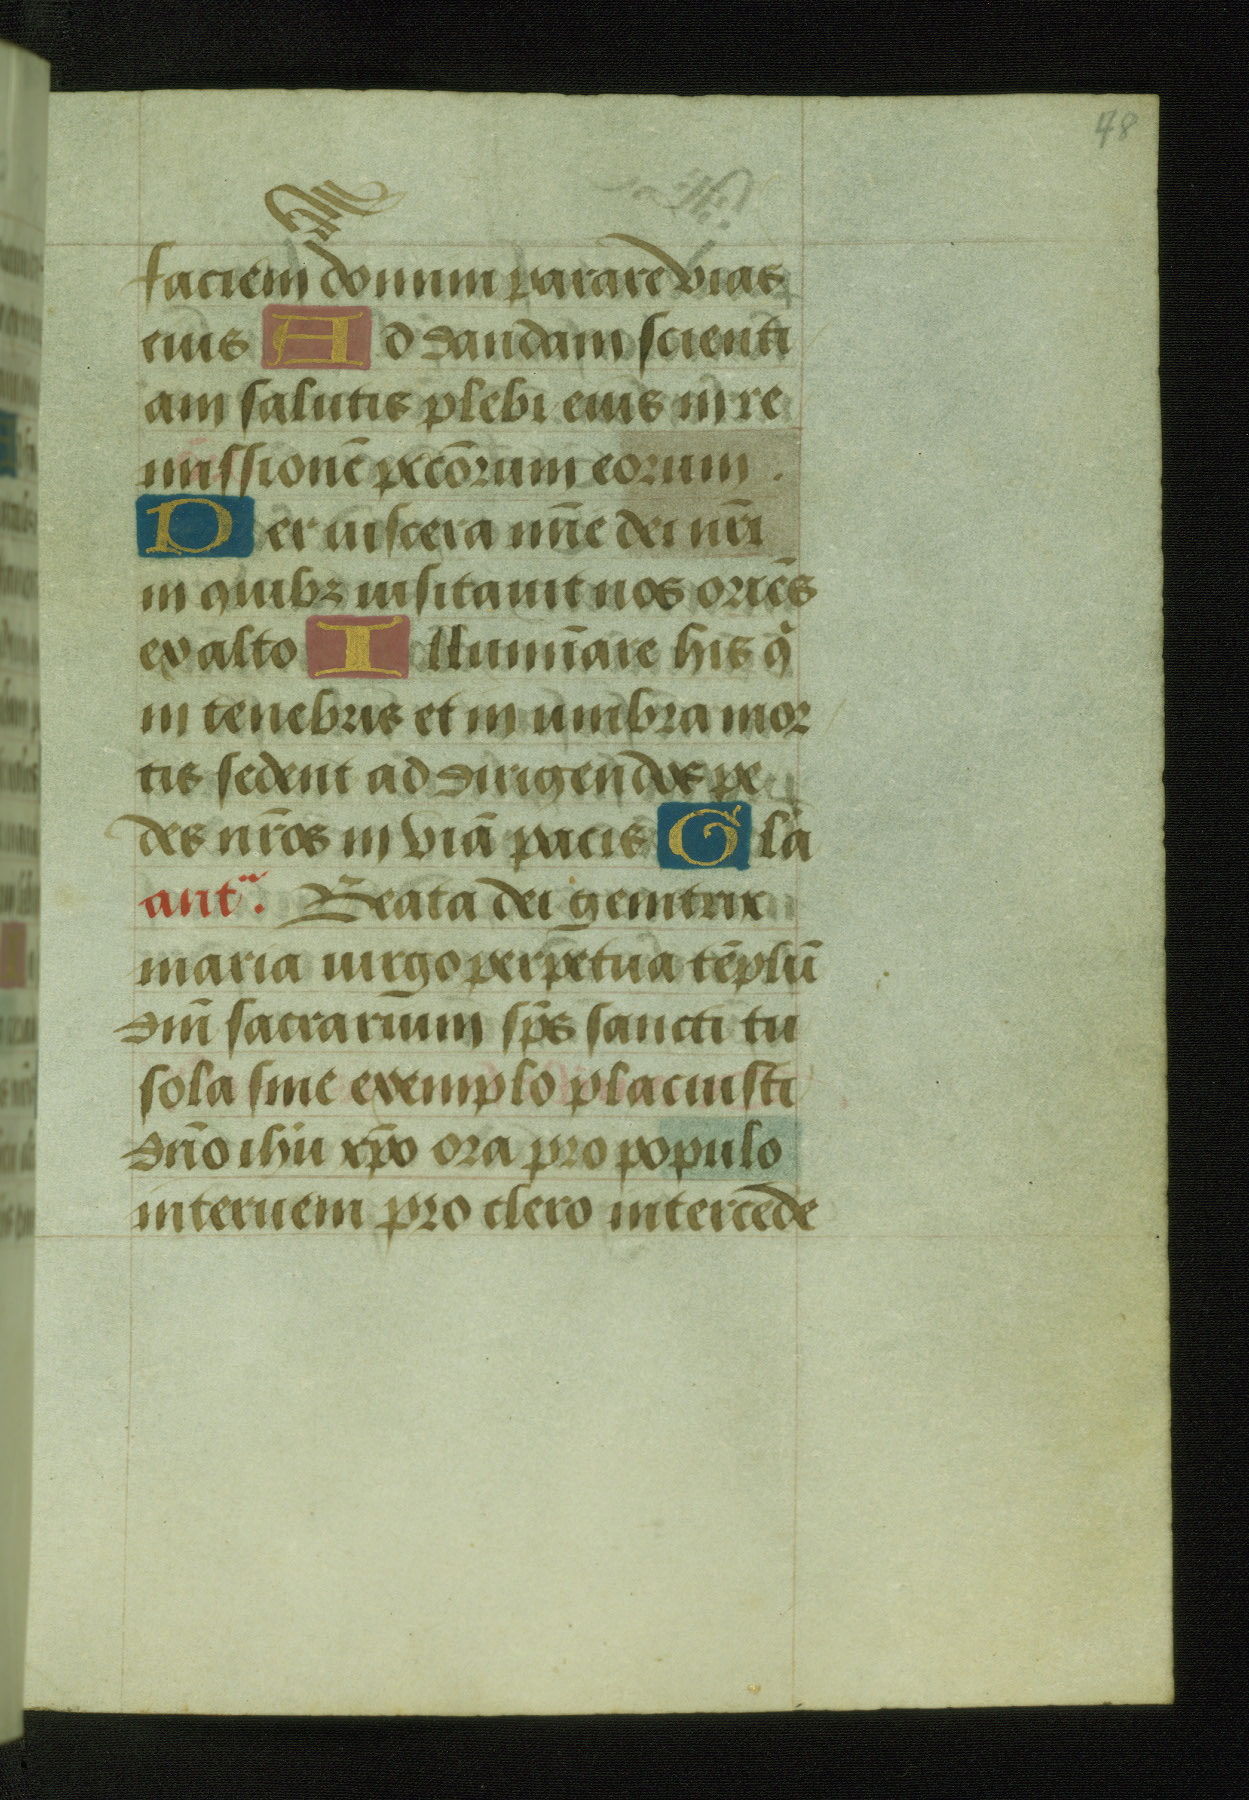 48
faciem domini parare vias
eius Ad dandam scienti
am salutis plebi eius in re
missionē pccōrum eorum .
Per uiscera mīe dei nrī
in quibꝫ uisitauit nos oriēs
ex alto Illumīare his q̄
in tenebris et in umbra mor
tis sedent ad dirigendos pe
des nrōs in viā pacis Gla
ant. Beata dei genitrix
maria uirgo perpetua tēplū
dnī sacrarium sp̄s sancti tu
sola sine exemplo placuisti
dnō ihū xp̄o ora pro populo
interueni pro clero intercede